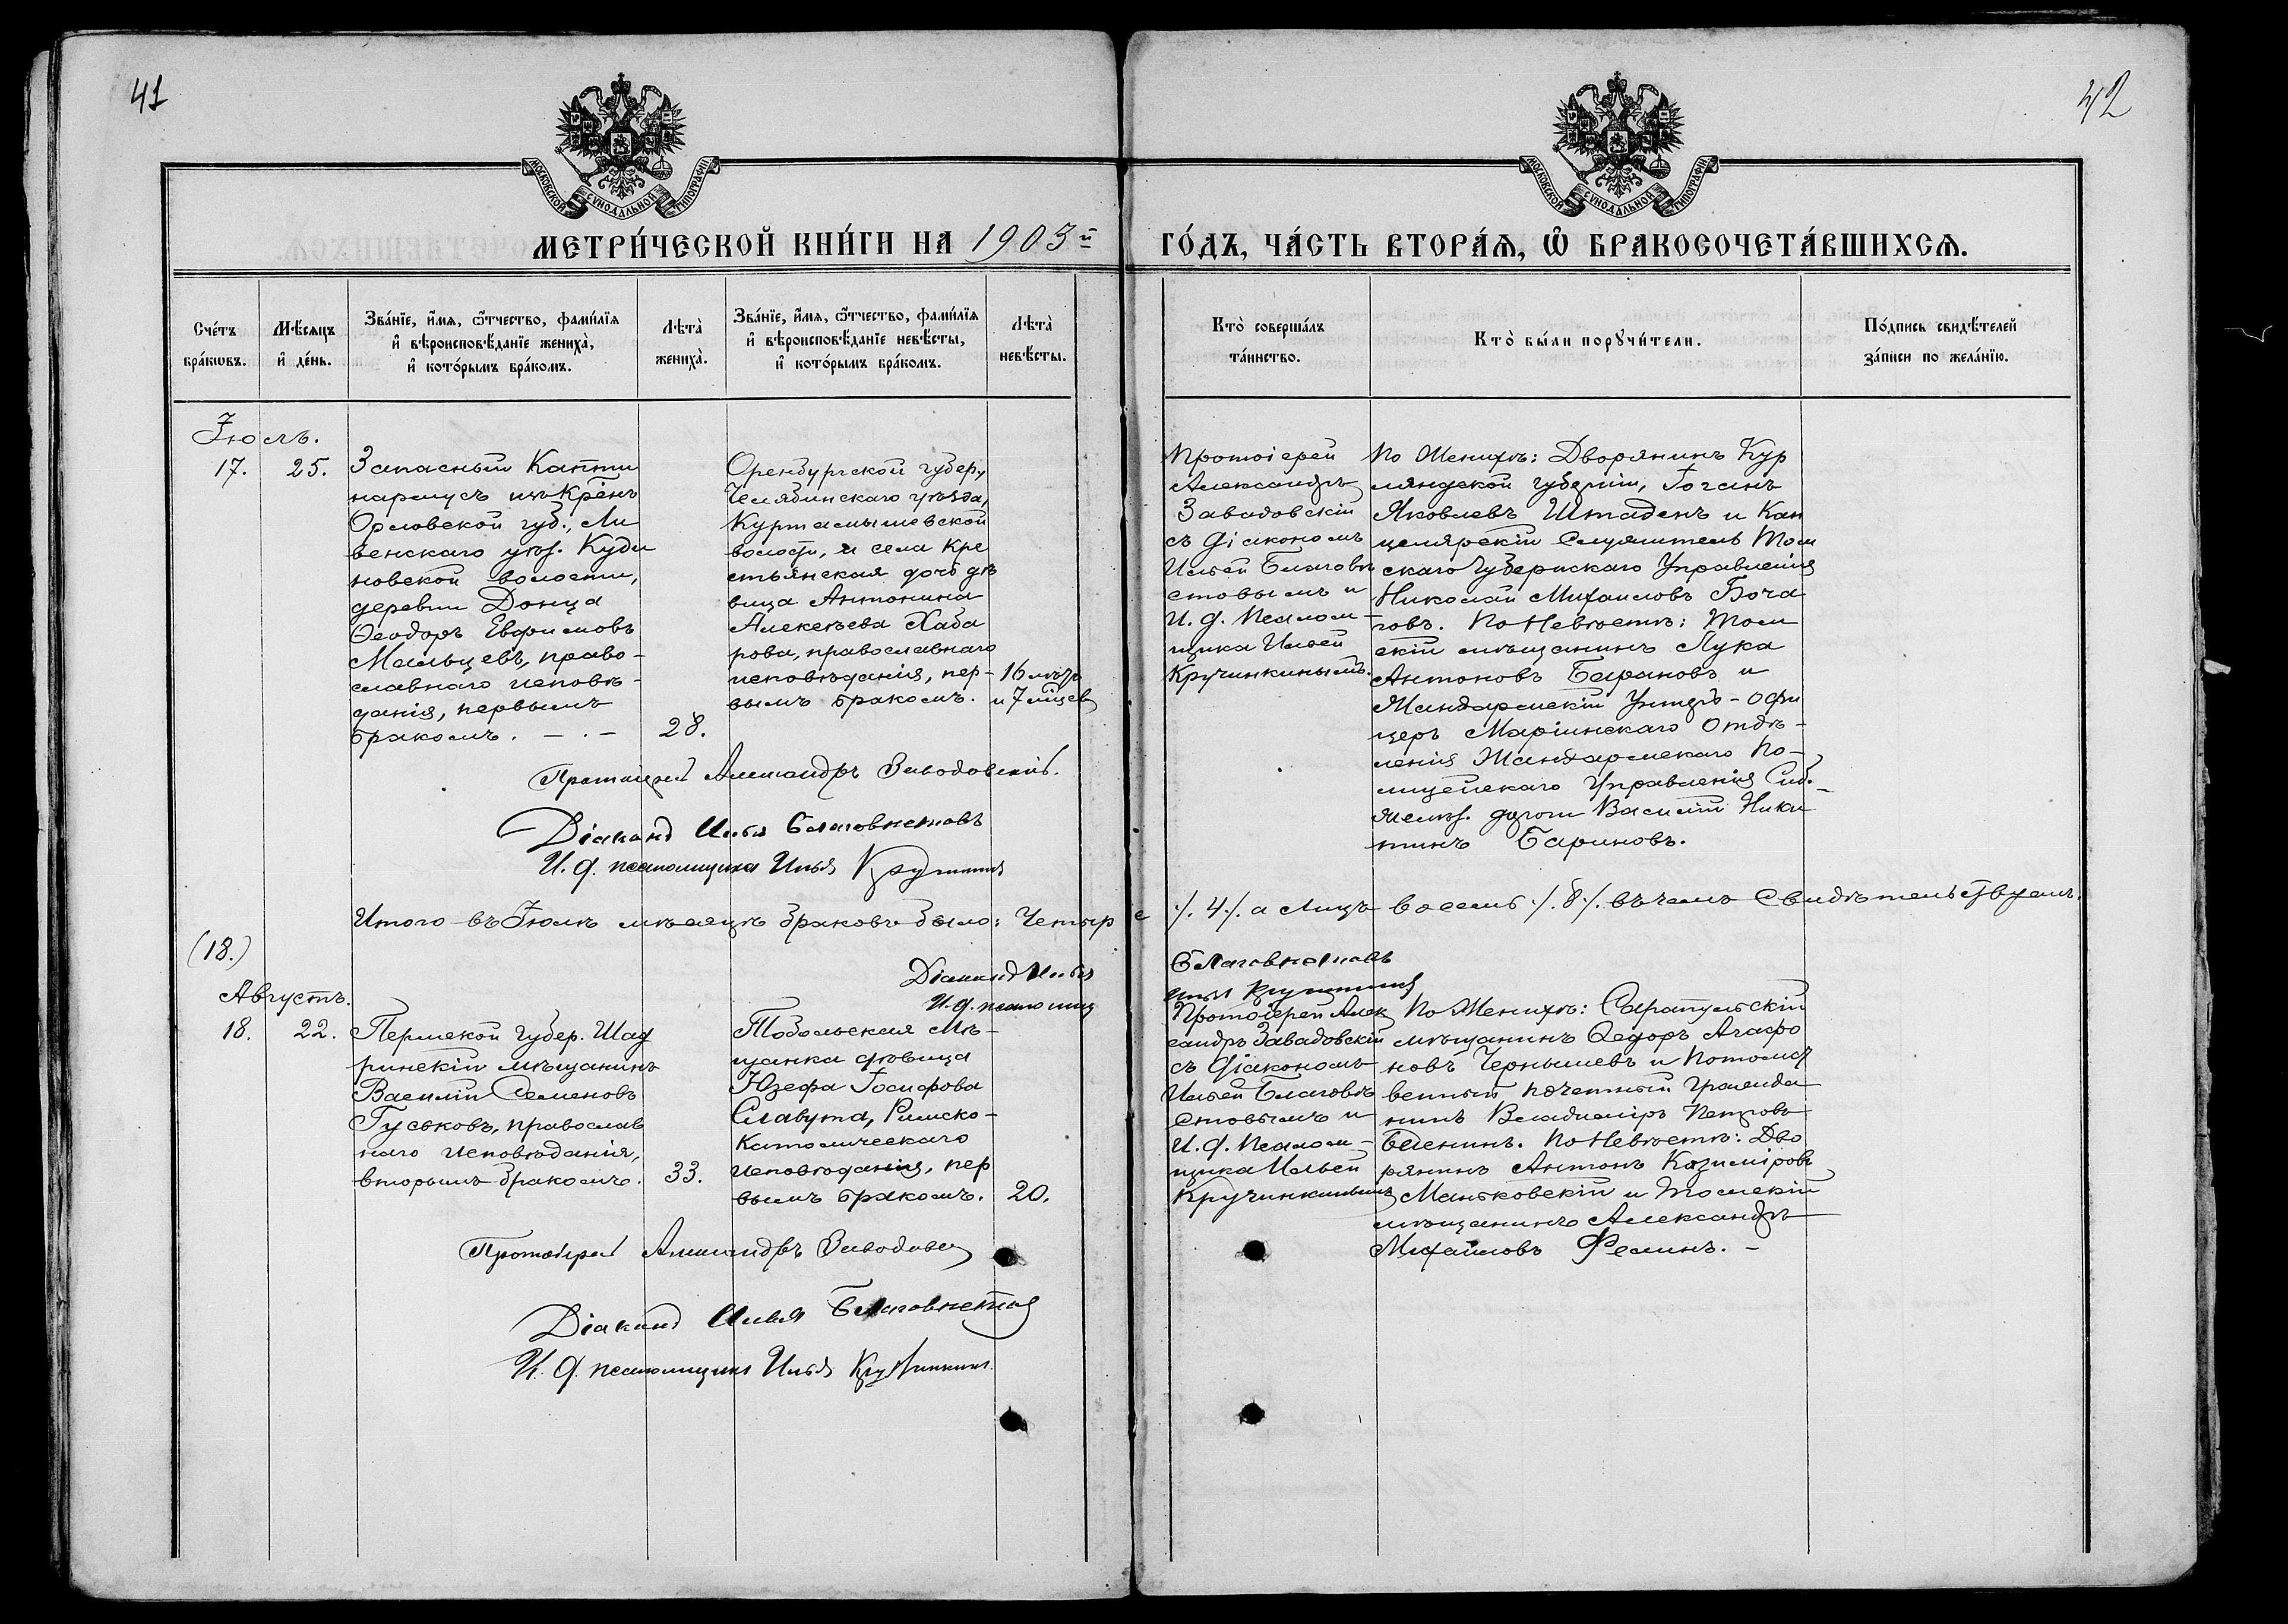 41
42
МОСКОВСКОЙ СѴНОДАЛЬНОЙ ТИПОГРАФІИ
МОСКОВСКОЙ СѴНОДАЛЬНОЙ ТИПОГРАФІИ
МЕТРИ́ЧЕСКОЙ КНИ́ГИ НА 1903й ГО́ДЪ, ЧА́СТЬ ВТОРА́Ѧ, Ѡ҆ БРАКОСОЧЕТА́ВШИХСѦ.
Сче́тъ бра́кѡвъ.
Мѣ́сѧцъ и҆ де́нь.
Зва́нїе, и҆́мѧ, ѻ҆́тчество, фами́лїѧ
и҆ вѣроисповѣ́данїе жениха̀,
и҆ кото́рымъ бра́комъ.
Лѣта̀ жениха̀.
Зва́нїе, и҆́мѧ, ѻ҆́тчество, фами́лїѧ
и҆ вѣроисповѣ́данїе невѣ́сты,
и҆ кото́рымъ бра́комъ.
Лѣта̀ невѣ́сты.
Кто̀ соверша́лъ та́инство.
Кто̀ бы́ли порꙋчи́тели.
По́дпись свидѣ́телей
за́писи по жела́нїю.
Іюль.
17.
25.
Запасный Капти
нармусъ изъ Крѣнъ
Орловской губ., Ли
венскаго уѣз. Куди
новской волости,
деревни Донца
Ѳеодоръ Евфимовъ
Мальцевъ, право-
славнаго исповѣ-
данія, первымъ
бракомъ. — . —
28.
Оренбургской губер,
Челябинскаго уѣзда,
Куртамышевской
волости, и села кре
стьянская дочь дѣ
вица Антонина
Алексѣева Хаба
рова, православнаго
исповѣданія, пер-
вымъ бракомъ.
16 лѣтъ
и 7 мѣцев
Протоіерей
Александръ
Заводовскій
съ діакономъ
Ильей Благовѣ
стовымъ и
И. д. Псалом-
щика Ильей
Кручинкинымъ.
По Женихѣ: Дворянинъ Кур
ляндской губерніи, Іоганъ
Яковлевъ Штаденъ и Кан
целярскій Служитель Том
скаго Губернскаго Управленія
Николай Михаиловъ Боча
говъ. По Невѣстѣ: Том
скій мѣщанинъ Лука
Антоновъ Барановъ и
Жандармскій Унтеръ-офи
церъ Маріинскаго Отдѣ-
ленія Жандармскаго По-
лицейскаго Управленія Сиб.
желѣз. дороги Василій Ники
тинъ Бариновъ.
Протоіерей Александръ Заводовскій.
Діаконъ Илья Благовѣстовъ
И. д. псаломщика Илья Кручинкинъ
Итого въ Іюлѣ мѣсяцѣ браковъ было: Четыре ./. 4 ./. а Лицъ восемь ./. 8 ./. въ чемъ свидѣтельствуемъ.
(18.)
Діаконъ Илья Благовѣстовъ
И. д. псаломщ Илья Кручинкинъ
Августъ.
18.
22.
Пермской губер. Шад
ринскій мѣщанинъ
Василій Семеновъ
Гуськовъ, православ
наго исповѣданія,
вторымъ бракомъ.
33.
Тобольская Мѣ-
щанка дѣвица
Юзефа Іосифова
Славута, Римско-
Католическаго
исповѣданія, пер
вымъ бракомъ.
20.
Протоіерей Алек
сандръ Заводовскій
съ діакономъ
Ильей Благовѣ
стовымъ и
И. д. Псалом-
щика Ильей
Кручинкинымъ
По Женихѣ: Сарапульскій
мѣщанинъ Ѳедоръ Агафо
новъ Чернышевъ и Потомст
венный почетный гражда
нинъ Владиміръ Петровъ
Беленинъ. По Невѣстѣ: Дво
рянинъ Антонъ Казиміровъ
Маньковскій и Томскій
мѣщанинъ Александръ
Михаиловъ Феминъ. —
Протоіерей Александръ Заводовск
Діаконъ Илья Благовѣстовъ
И. д. псаломщика Илья Кручинкинъ.